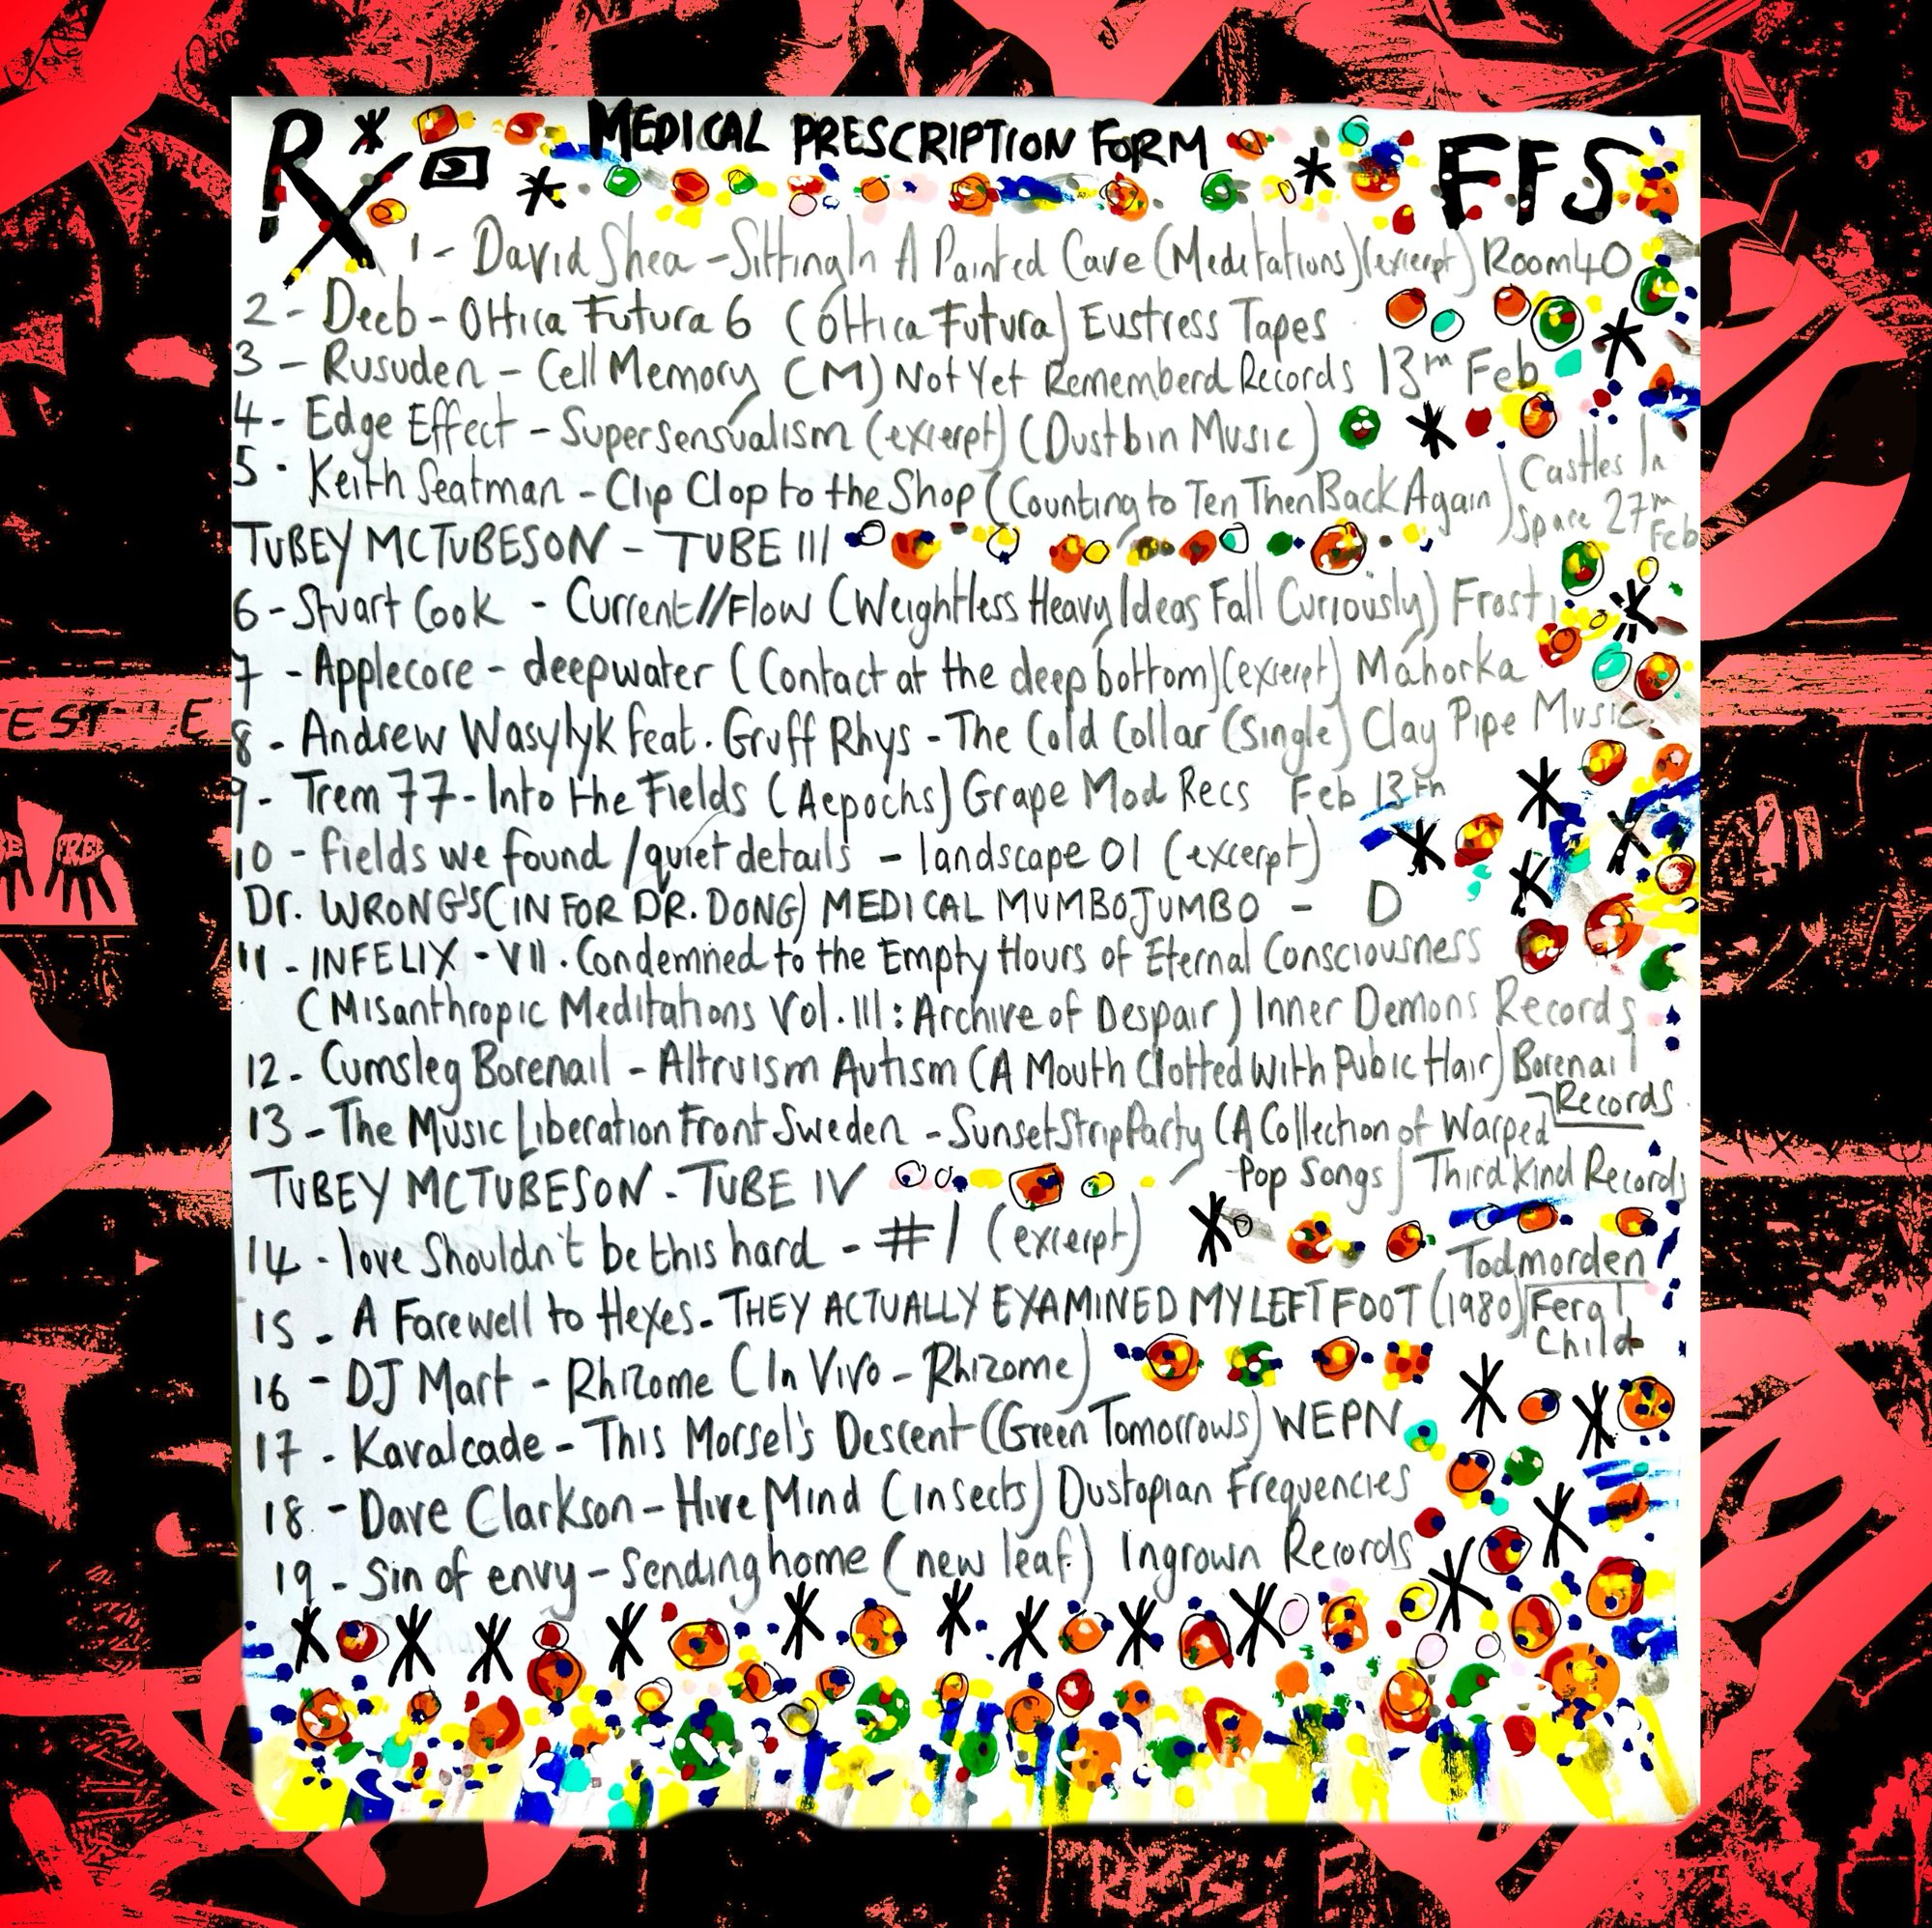 Rx MEDICAL PRESCRIPTION FORM FFS
1 - David Shea - Sitting In A Painted Cave (Meditations) (excerpt) Room40
2 - Deeb - Ottica Futura 6 (Ottica Futura) Eustress Tapes
3 - Rusuden - Cell Memory (CM) Not Yet Rememberd Records 13th Feb
4 - Edge Effect - Supersensualism (excerpt) (Dustbin Music)
5 - Keith Seatman - Clip Clop to the Shop (Counting to Ten Then Back Again)
Castles In
Space 27th
Feb
TUBEY MCTUBESON - TUBE III
6 - Stuart Cook - Current//Flow (Weightless Heavy Ideas Fall Curiously) Frosti
7 - Applecore - deepwater (Contact at the deep bottom) (excerpt) Mahorka
8 - Andrew Wasylyk feat. Gruff Rhys - The Cold Collar (Single) Clay Pipe Music
9 - Trem 77 - Into the Fields (Aepochs) Grape Mod Recs Feb 13th
10 - fields we found / quiet details - landscape 01 (excerpt)
Dr. WRONG'S (IN FOR DR. DONG) MEDICAL MUMBOJUMBO - D
11 - INFELIX - VII. Condemned to the Empty Hours of Eternal Consciousness
(Misanthropic Meditations Vol. III: Archive of Despair) Inner Demons Records
12 - Cumsleg Borenail - Altruism Autism (A Mouth Clotted With Pubic Hair) Borenail
Records
13 - The Music Liberation Front Sweden - Sunset Strip Party (A Collection of Warped
Pop Songs) Third Kind Records
TUBEY MCTUBESON - TUBE IV
14 - love shouldn't be this hard - #1 (excerpt)
15 - A Farewell to Hexes - THEY ACTUALLY EXAMINED MY LEFT FOOT (1980)
Todmorden
Feral
Child
16 - DJ Mart - Rhizome (In Vivo - Rhizome)
17 - Kavalcade - This Morsel's Descent (Green Tomorrows) WEPN
18 - Dave Clarkson - Hive Mind (insects) Dustopian Frequencies
19 - Sin of envy - Sending home (new leaf) Ingrown Records
FREE